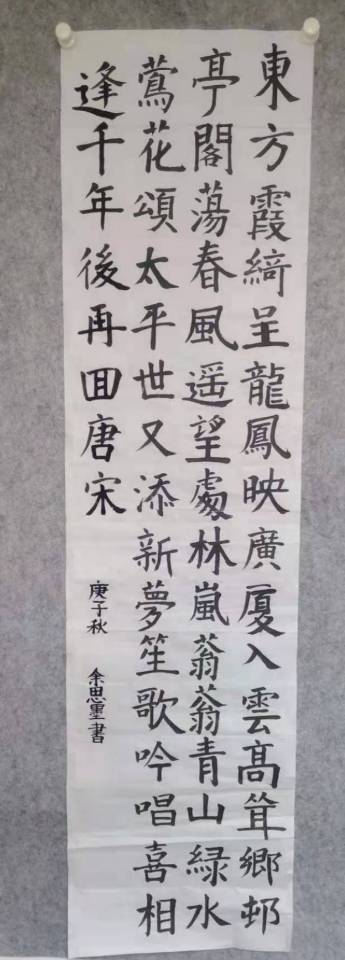 東方霞綺呈龍鳳映廣廈入雲高聳鄉邨
亭閣蕩春風遥望處林嵐蓊蓊青山緑水
鶯花頌太平世又添新夢笙歌吟唱喜相
逢千年後再回唐宋
庚子秋 余思墨書